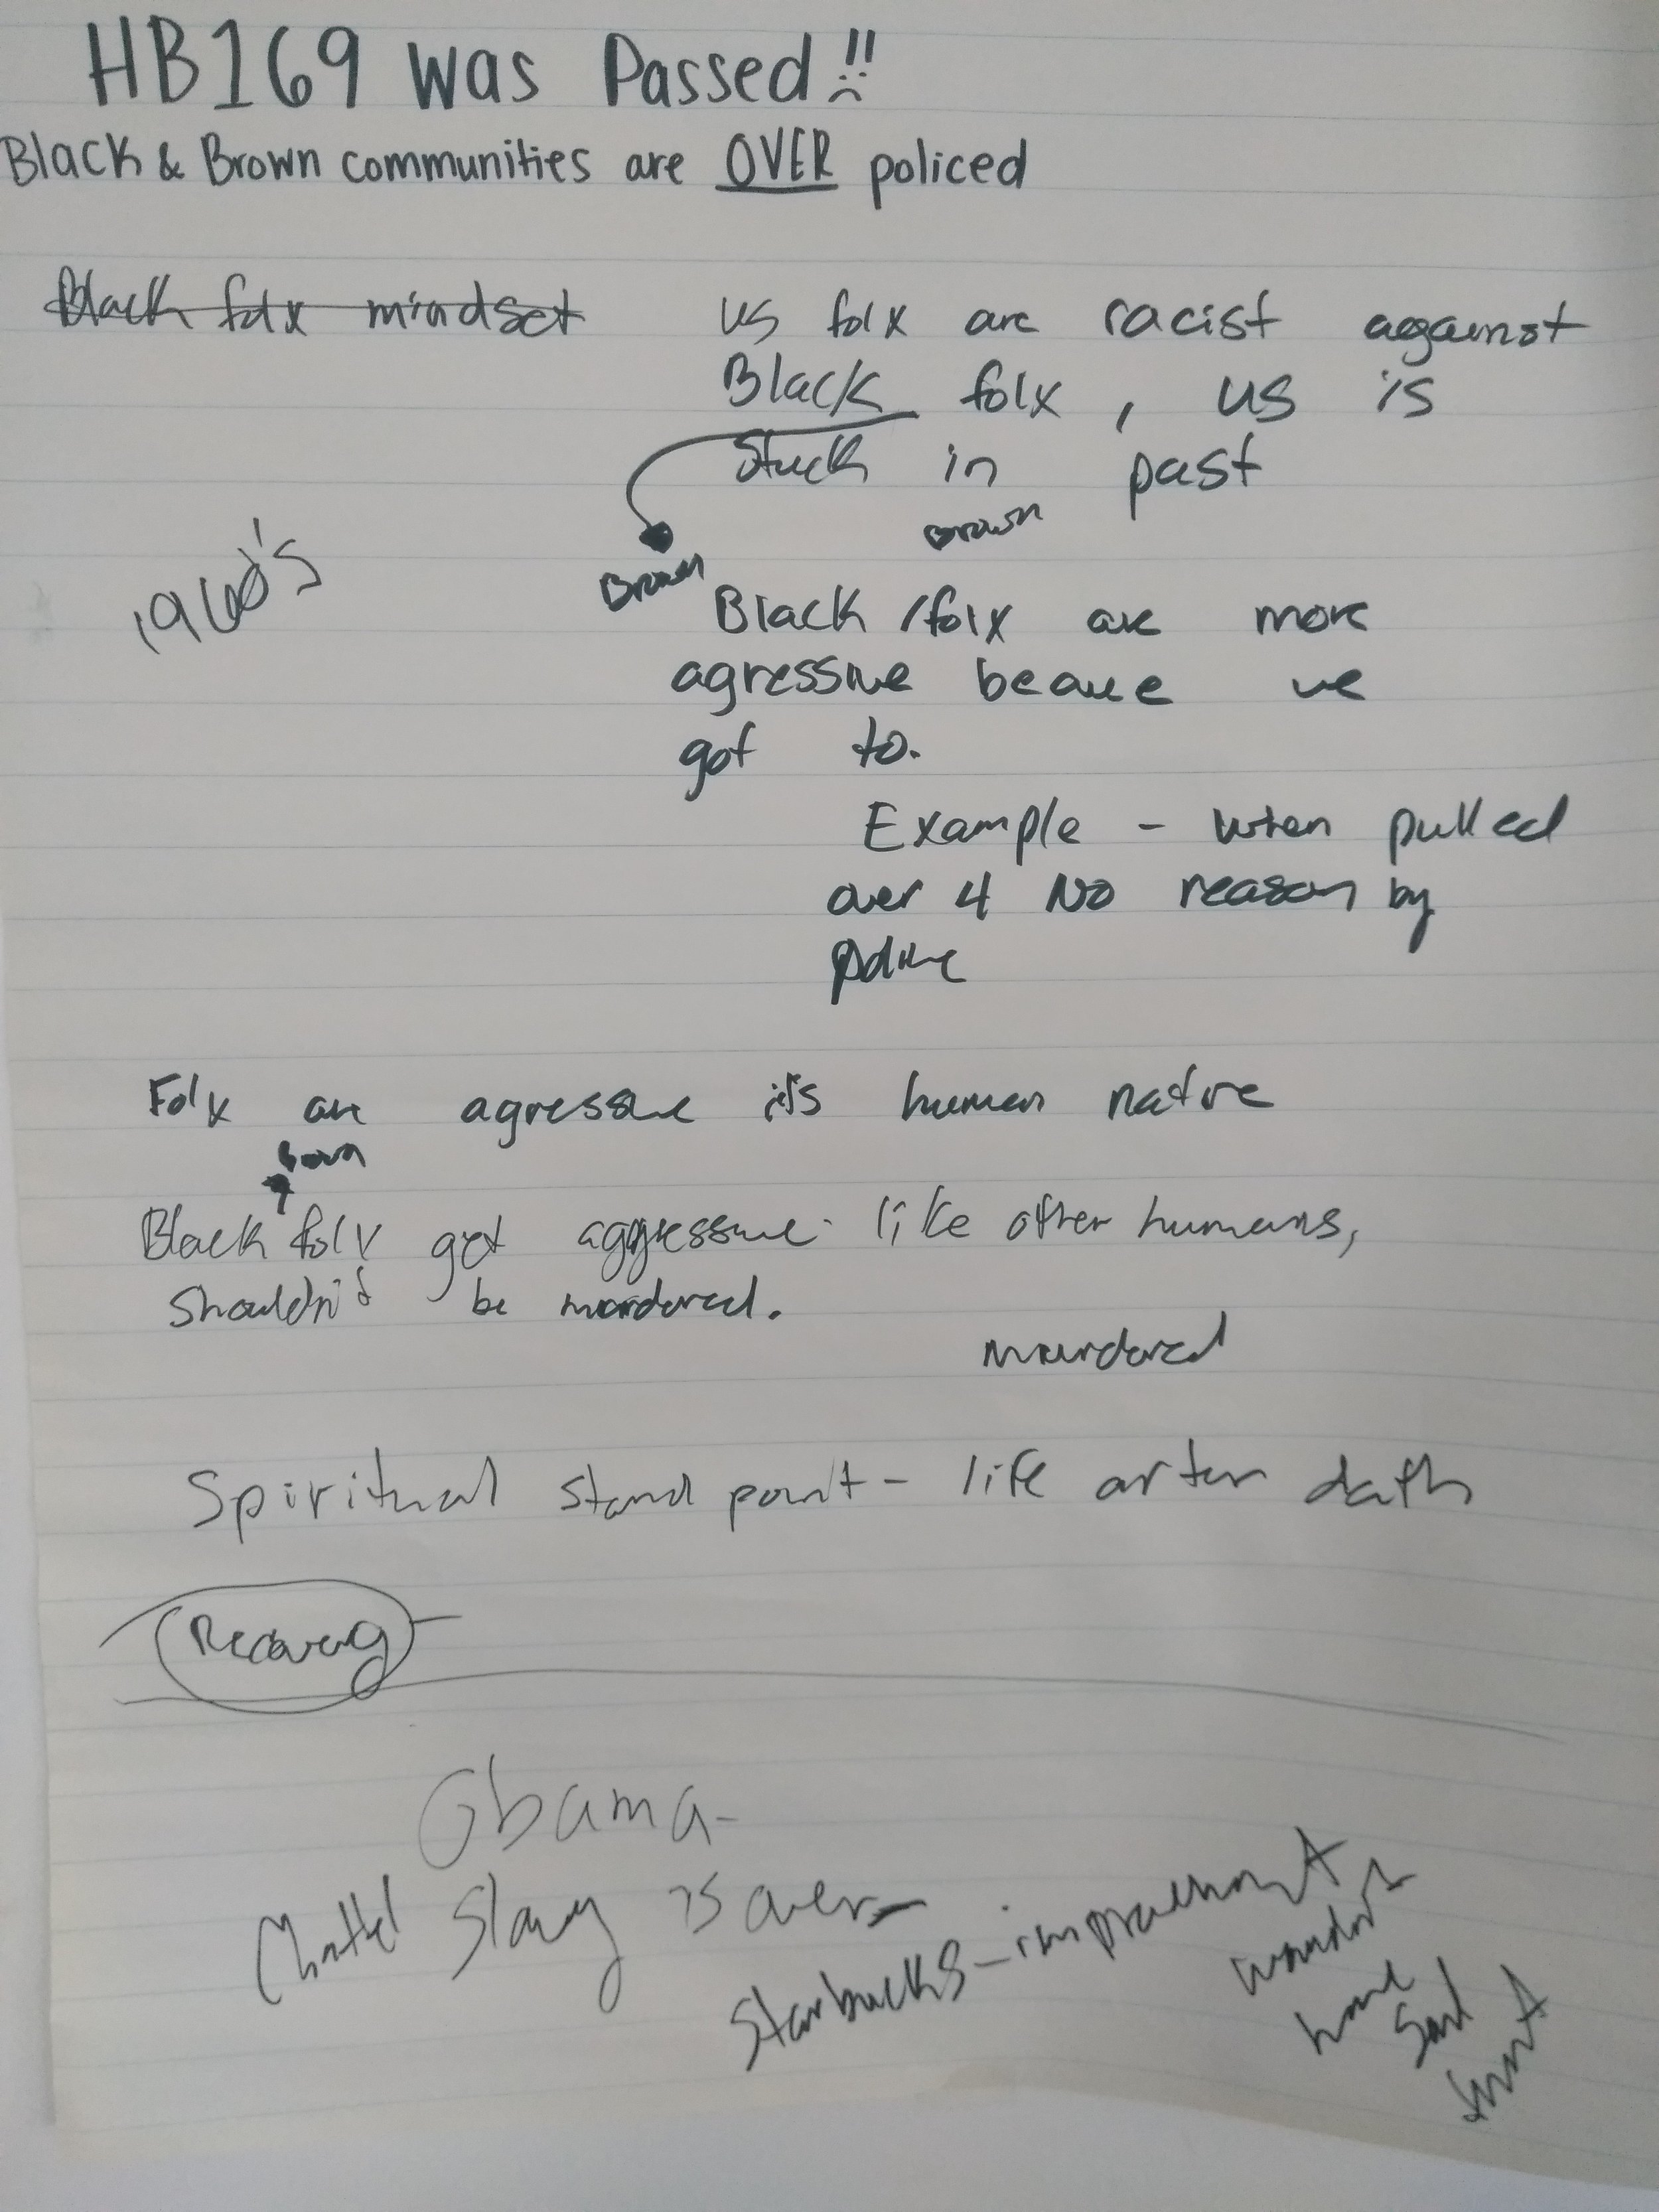 HB169 was Passed!!
Black & Brown communities are OVER policed
Black folx mindset
us folx are racist against
Black folx, us is
stuck in past
Brown
Brown
1960's
Black /folx are more
agressive beaue we
got to.
Example - when pulled
over 4 NO reason by
police
Folx are agressive it's human nature
brown
Black folx get aggressive like other humans,
shouldn't be murdered.
murdered
Spiritual stand point - life after death
Recovery
Obama-
Chattel Slavy is over-
Starbucks - improvement